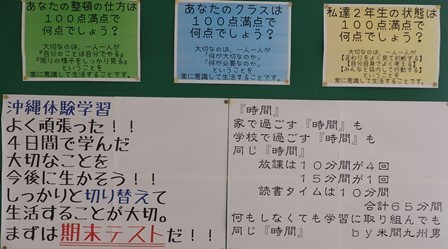 あなたの整頓の仕方は
１００点満点で
何点でしょう？
大切なのは、一人一人が
『自分のことは自分でやる』
『周りの様子をしっかり見る』
ということを
常に意識して生活することです。
あなたのクラスは
１００点満点で
何点でしょう？
大切なのは、一人一人が
「何が大切なのか」
「何が必要なのか」
ということを
常に意識して生活することです。
私達２年生の状態は
１００点満点で
何点でしょう？
大切なのは、一人一人が
【まわりをよく見て判断する】
【自分自身でよく考える】
【みんなと協力して行動する】
ということを
常に意識して生活することです。
沖縄体験学習
よく頑張った！！
４日間で学んだ
大切なことを
今後に生かそう！！
しっかりと切り替えて
生活することが大切。
まずは期末テストだ！！
『時間』
家で過ごす『時間』も
学校で過ごす『時間』も
同じ『時間』
放課は１０分間が４回
１５分間が１回
読書タイムは１０分間
合計６５分間
何もしなくても学習に取り組んでも
同じ『時間』 ｂｙ米間九州男